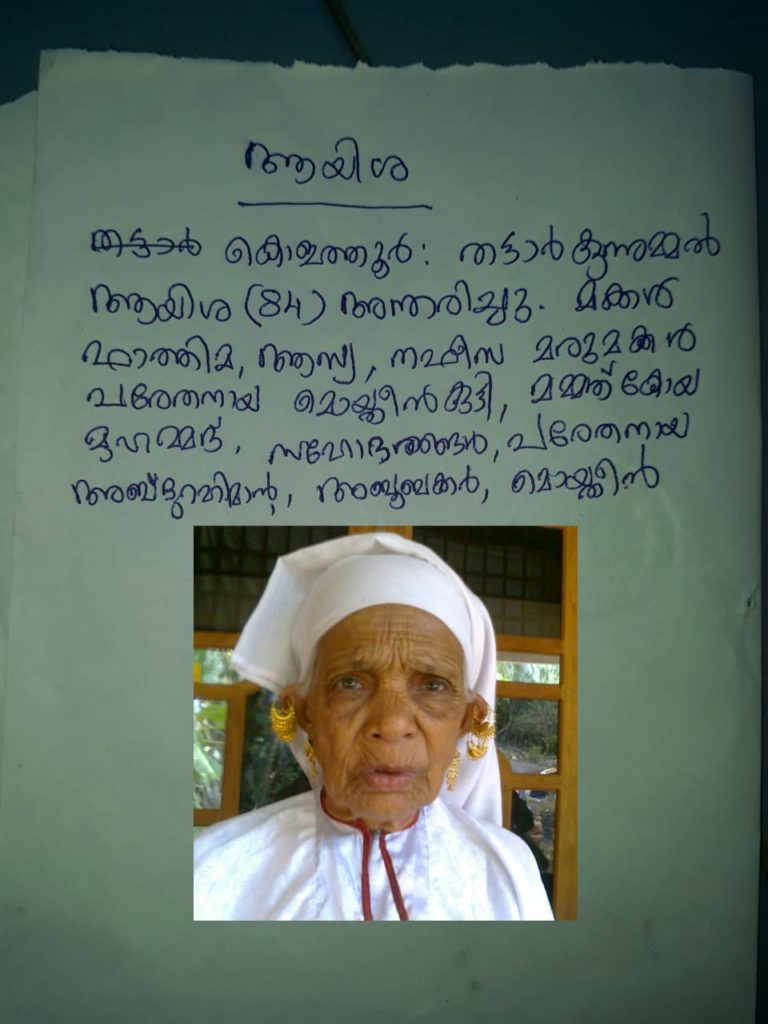 ആയിശ
തട്ടാർ കൊളത്തൂർ: തട്ടാർകുന്നുമ്മൽ
ആയിശ (84) അന്തരിച്ചു. മക്കൾ
ഫാത്തിമ, ആസ്യ, നഫീസ മരുമക്കൾ
പരേതനായ മൊയ്തീൻകുട്ടി, മമ്മത് കോയ
മുഹമ്മദ്. സഹോദരങ്ങൾ, പരേതനായ
അബ്ദുറഹിമാൻ, അബൂബക്കർ, മൊയ്തീൻ